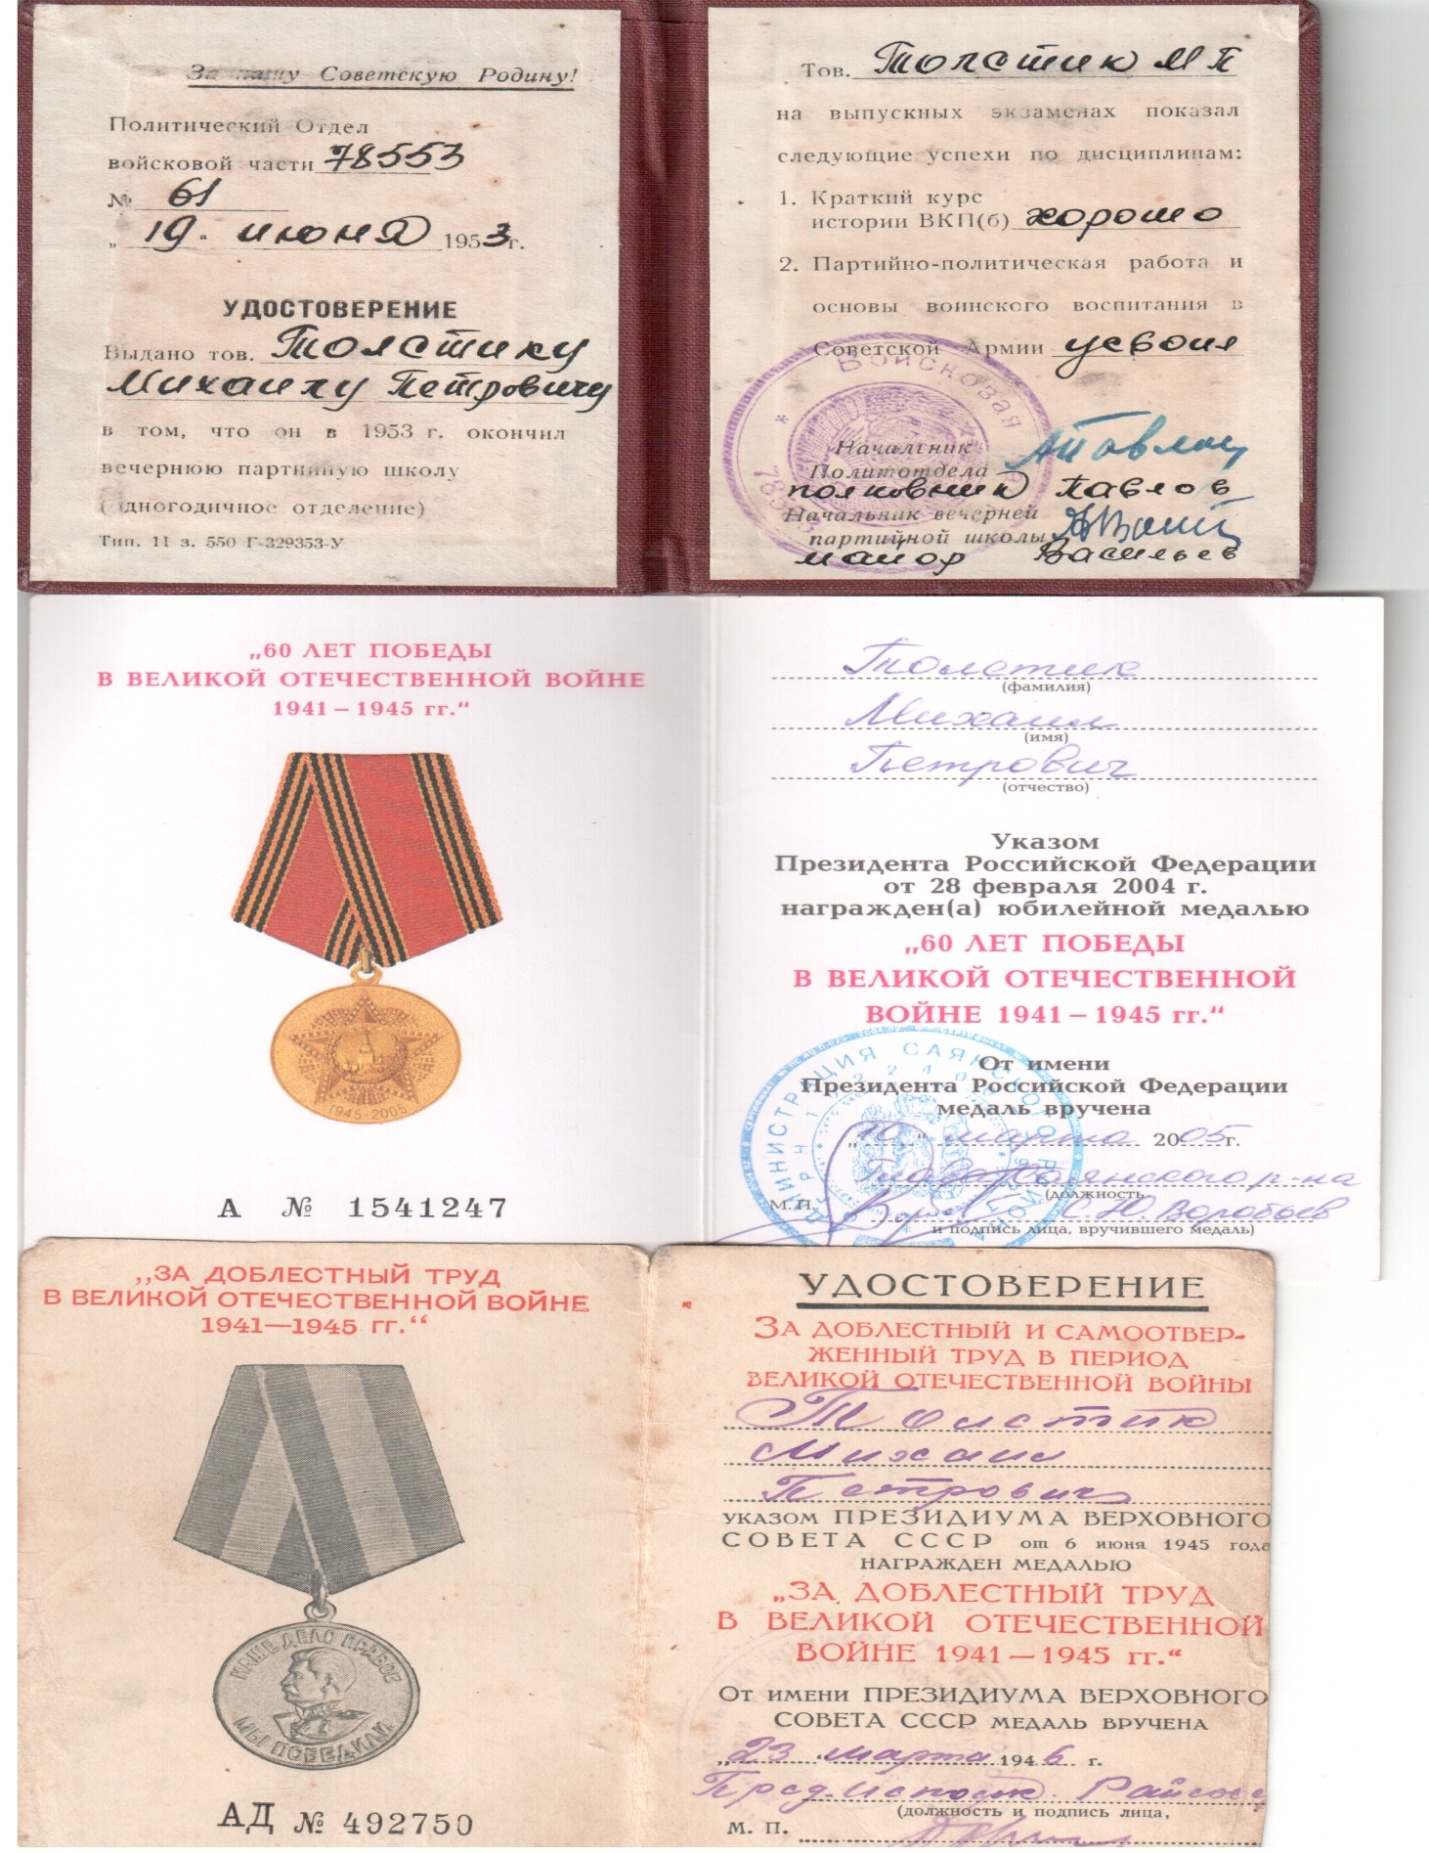 За нашу Советскую Родину!
Политический Отдел
войсковой части 78553
№ 61
„19“ июня 1953 г.
УДОСТОВЕРЕНИЕ
Выдано тов. Толстику
Михаилу Петровичу
в том, что он в 1953 г. окончил
вечернюю партийную школу
(одногодичное отделение)
Тип. 11 з. 550 Г-329353-У
Тов. Толстик М П
на выпускных экзаменах показал
следующие успехи по дисциплинам:
1. Краткий курс
истории ВКП(б) хорошо
2. Партийно-политическая работа и
основы воинского воспитания в
Советской Армии усвоил
Войсковая
Начальник
Политотдела
полковник Павлов
Начальник вечерней
партийной школы
майор Васильев
„60 ЛЕТ ПОБЕДЫ
В ВЕЛИКОЙ ОТЕЧЕСТВЕННОЙ ВОЙНЕ
1941 – 1945 гг.“
1945-2005
А № 1541247
Толстик
(фамилия)
Михаил
(имя)
Петрович
(отчество)
Указом
Президента Российской Федерации
от 28 февраля 2004 г.
награжден(а) юбилейной медалью
„60 ЛЕТ ПОБЕДЫ
В ВЕЛИКОЙ ОТЕЧЕСТВЕННОЙ
ВОЙНЕ 1941 – 1945 гг.“
От имени
Президента Российской Федерации
медаль вручена
„10“ марта 2005 г.
Глава Саянского р-на
(должность
М. П. С.Ю. Воробьев
и подпись лица, вручившего медаль)
АДМИНИСТРАЦИЯ САЯНСКОГО РАЙОНА
„ЗА ДОБЛЕСТНЫЙ ТРУД
В ВЕЛИКОЙ ОТЕЧЕСТВЕННОЙ ВОЙНЕ
1941—1945 гг.“
НАШЕ ДЕЛО ПРАВОЕ
МЫ ПОБЕДИЛИ
АД № 492750
УДОСТОВЕРЕНИЕ
ЗА ДОБЛЕСТНЫЙ И САМООТВЕР-
ЖЕННЫЙ ТРУД В ПЕРИОД
ВЕЛИКОЙ ОТЕЧЕСТВЕННОЙ ВОЙНЫ
Толстик
Михаил
Петрович
УКАЗОМ ПРЕЗИДИУМА ВЕРХОВНОГО
СОВЕТА СССР от 6 июня 1945 года
НАГРАЖДЕН МЕДАЛЬЮ
„ЗА ДОБЛЕСТНЫЙ ТРУД
В ВЕЛИКОЙ ОТЕЧЕСТВЕННОЙ
ВОЙНЕ 1941 — 1945 гг.“
ОТ ИМЕНИ ПРЕЗИДИУМА ВЕРХОВНОГО
СОВЕТА СССР МЕДАЛЬ ВРУЧЕНА
„23“ марта 1946 г.
Пред. Исполк. Райсов
(должность и подпись лица,
М. П.